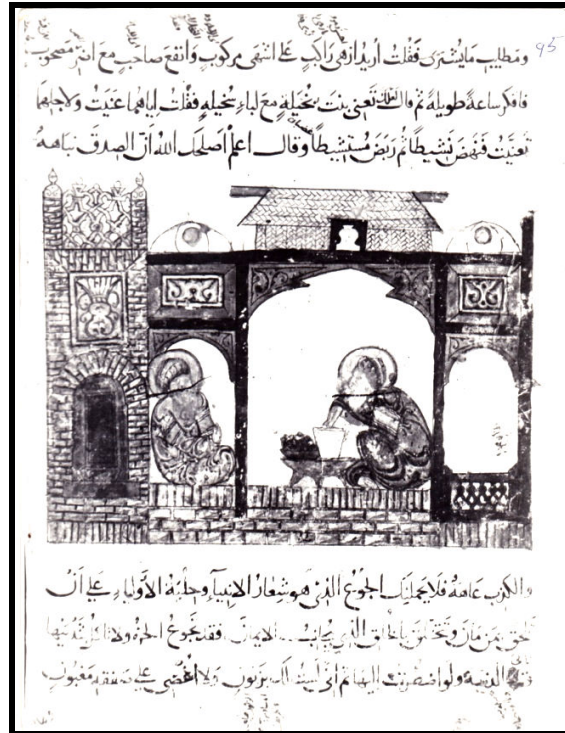 ومطايب ما يشترى فقلت أريد أزهى راكب على أشهى مركوب وأنفع صاحب مع أضر مصحوب
فافكر ساعة طويلة ثم قال لعلك تعني بنت نخيلة مع لباء سخيلة فقلت إياهما عنيت ولاجلهما
تعنيت فنهض نشيطا ثم ربض مستشيطا وقال اعلم أصلحك الله ان الصدق نباهة
والكذب عاهة فلا يحملنك الجوع الذي هو شعار الانبياء وحلية الأولياء على ان
تلحق بمن مان وتتخلق بالخلق الذي يجانب الايمان فقد تجوع الحرة ولا تأكل بثدييها
الدنية ولو اضطرت إليها ثم اني لست لك بزبون ولا أغضي على صفقة مغبون
95